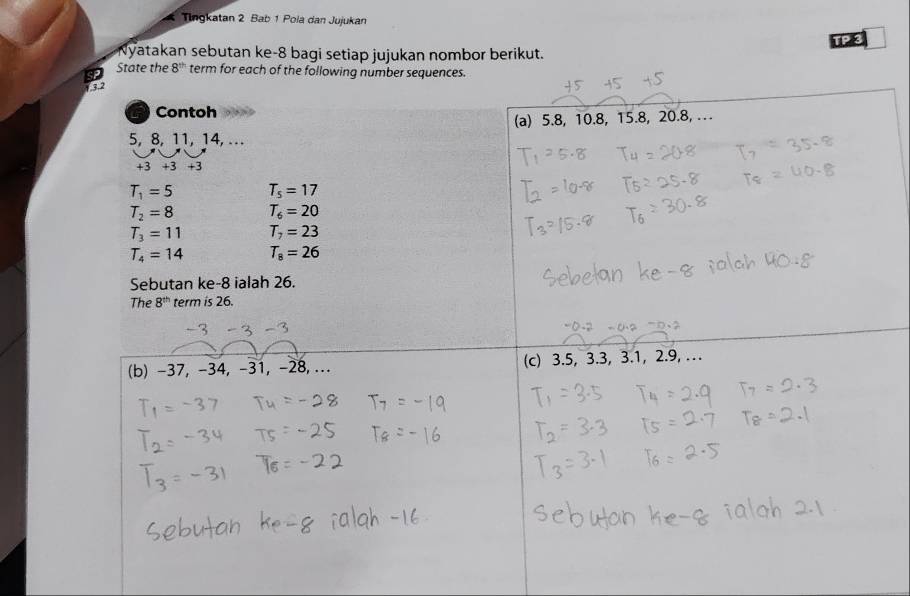 Tingkatan 2 Bab 1 Pola dan Jujukan
Nyatakan sebutan ke-8 bagi setiap jujukan nombor berikut.
TP 3
SP 1.3.2
State the 8th term for each of the following number sequences.
Contoh
5, 8, 11, 14, ...
+3 +3 +3
T₁ = 5 T₅ = 17
T₂ = 8 T₆ = 20
T₃ = 11 T₇ = 23
T₄ = 14 T₈ = 26
Sebutan ke-8 ialah 26.
The 8th term is 26.
+5 +5 +5
(a) 5.8, 10.8, 15.8, 20.8, ...
T₁ = 5.8 T₄ = 20.8 T₇ = 35.8
T₂ = 10.8 T₅ = 25.8 T₈ = 40.8
T₃ = 15.8 T₆ = 30.8
Sebetan ke-8 ialah 40.8
-3 -3 -3
(b) –37, –34, –31, –28, ...
T₁ = -37 T₄ = -28 T₇ = -19
T₂ = -34 T₅ = -25 T₈ = -16
T₃ = -31 T₆ = -22
Sebutan ke-8 ialah -16.
-0.2 -0.2 -0.2
(c) 3.5, 3.3, 3.1, 2.9, ...
T₁ = 3.5 T₄ = 2.9 T₇ = 2.3
T₂ = 3.3 T₅ = 2.7 T₈ = 2.1
T₃ = 3.1 T₆ = 2.5
Sebutan ke-8 ialah 2.1